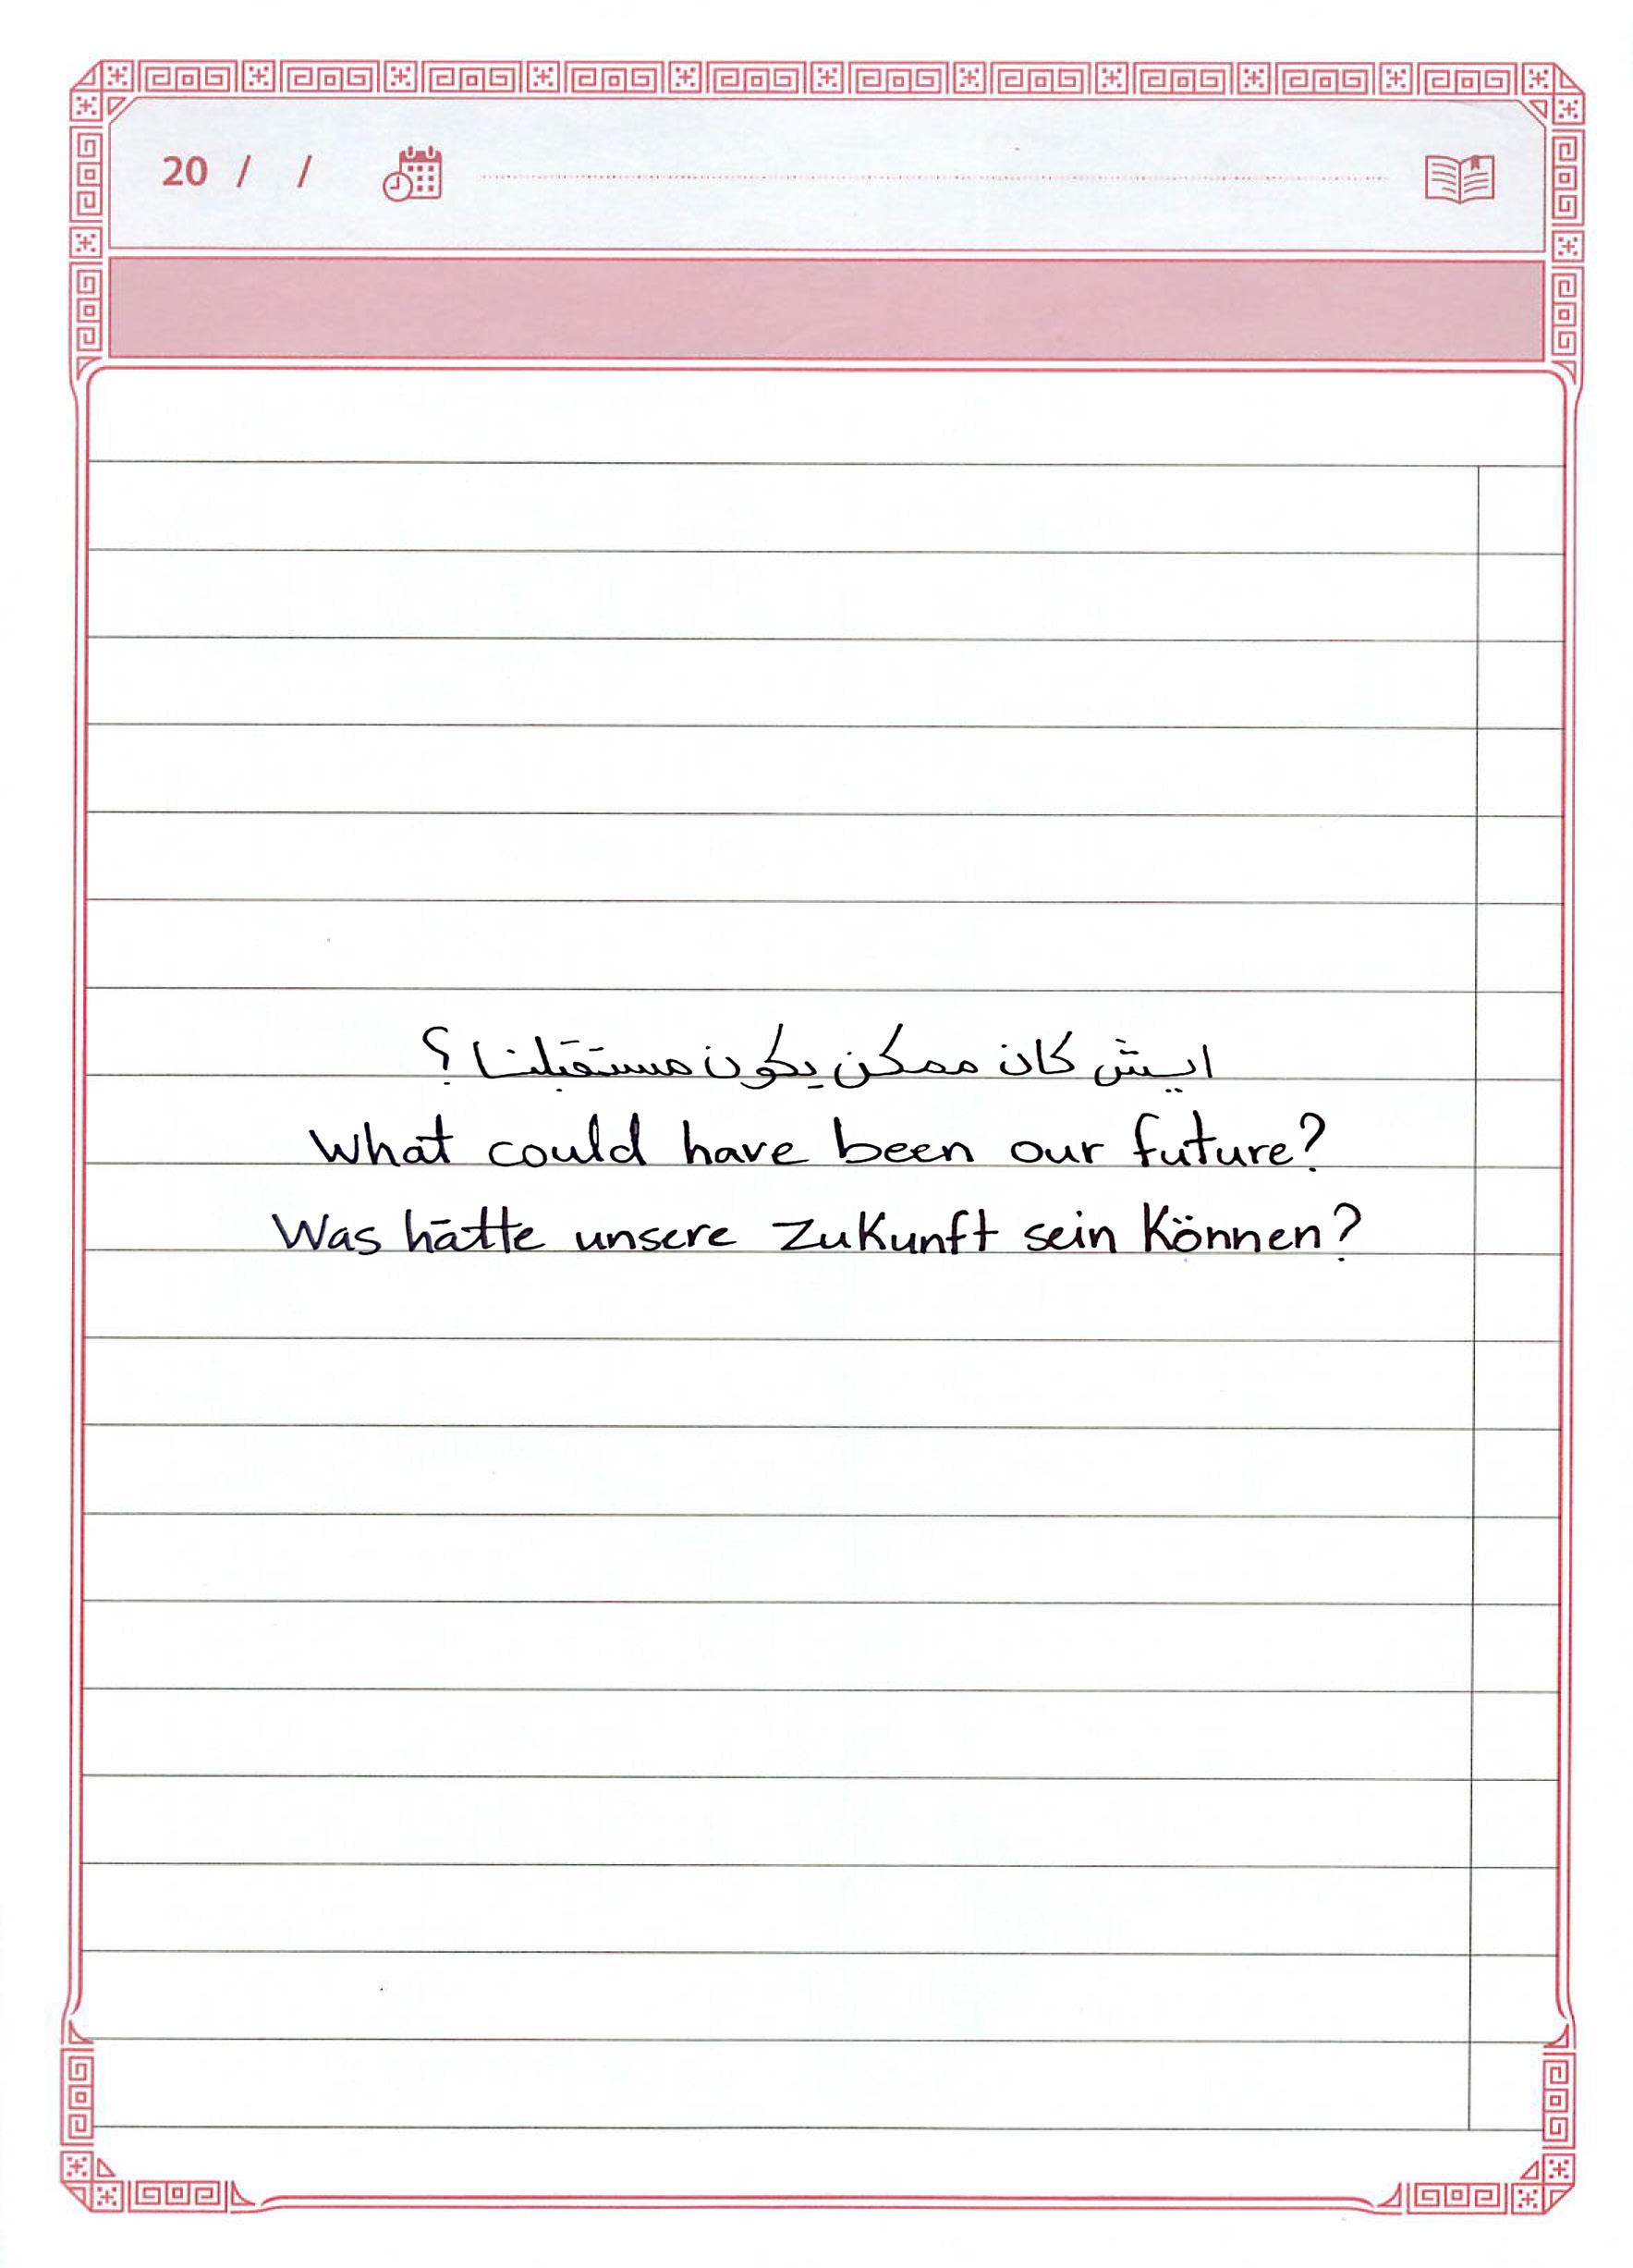 20 / /
ايش كان ممكن يكون مستقبلنا؟
What could have been our future?
Was hätte unsere Zukunft sein können?